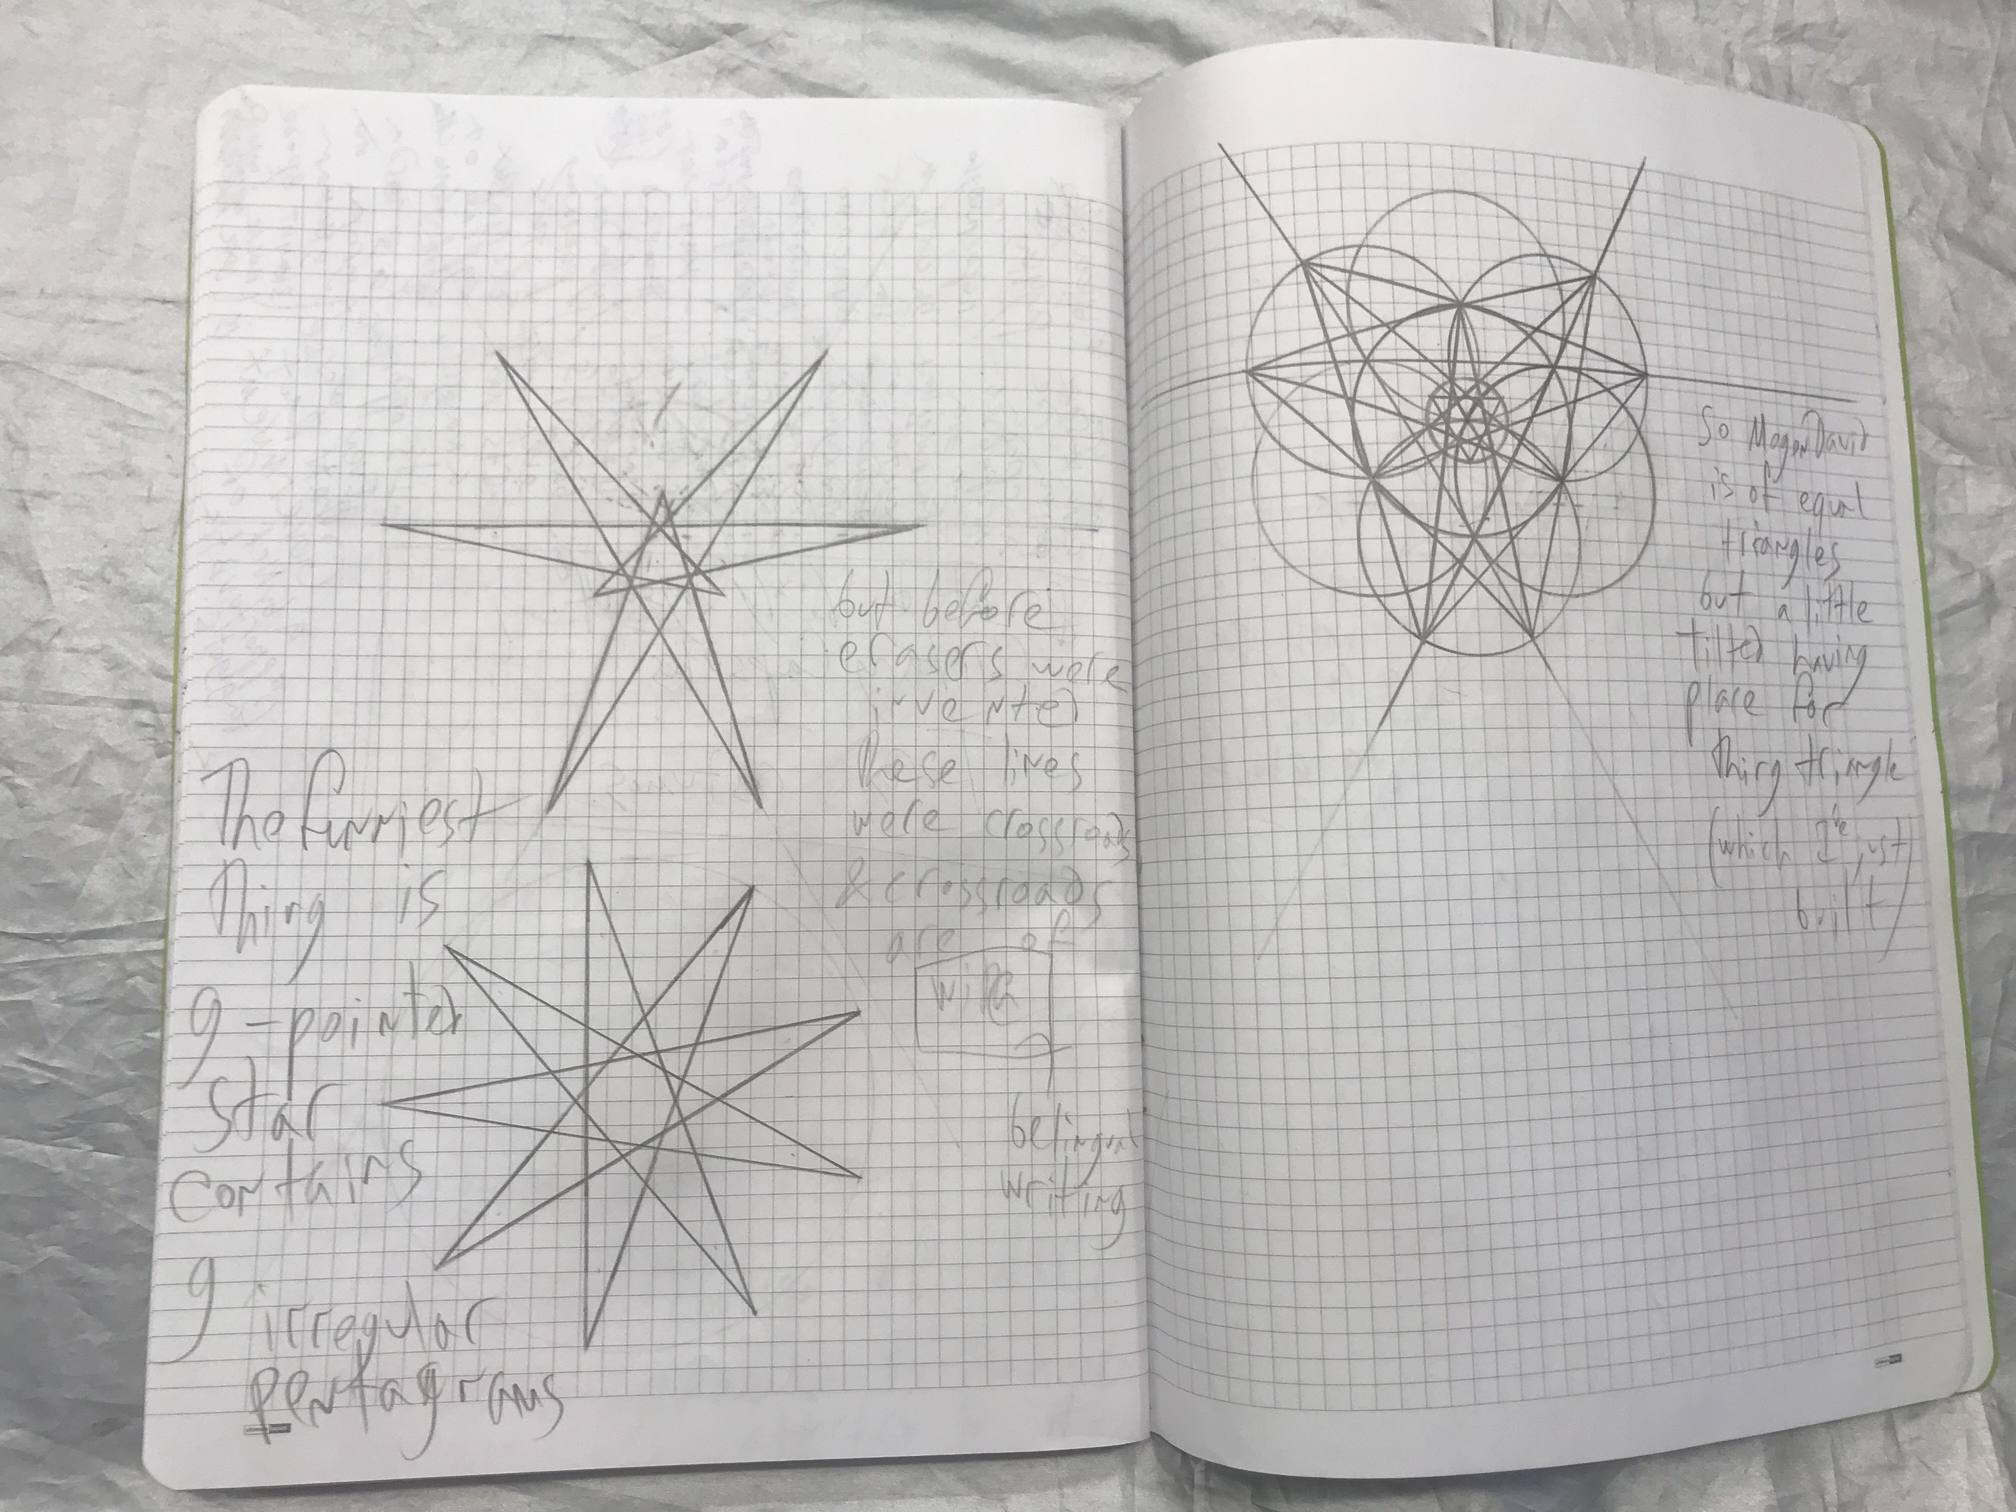 The funniest
thing is
9-pointed
star
contains
9 irregular
pentagrams
but before
erasers were
invented
these lines
were crossroads
& crossroads
are of
belingual
writing
So MogenDavid
is of equal
triangles
but a little
tilted having
place for
thirg triangle
(which I've just
built)